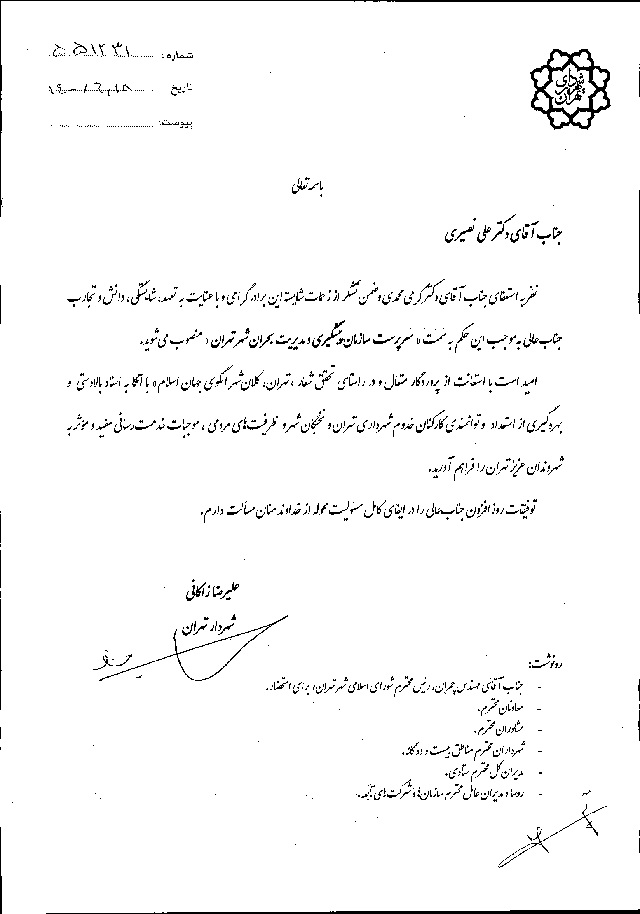 شهرداری تهران
شماره:
تاریخ
پیوست:
باسمه تعالی
جناب آقای دکتر علی نصیری
نظر به استعفای جناب آقای دکتر کرمی محمدی و ضمن تشکر از زحمات شایسته این برادر گرامی و با عنایت به تعهد، شایستگی، دانش و تجارب
جنابعالی به موجب این حکم به سمت « سرپرست سازمان پیشگیری و مدیریت بحران شهر تهران » منصوب می‌شوید.
امید است با استعانت از پروردگار متعال و در راستای تحقق شعار «تهران، کلان‌شهر الگوی جهان اسلام» با اتکا به اسناد بالادستی و
بهره‌گیری از استعداد و توانمندی کارکنان خدوم شهرداری تهران و نخبگان شهر و ظرفیت‌های مردمی، موجبات خدمت‌رسانی مفید و مؤثر به
شهروندان عزیز تهران را فراهم آورید.
توفیقات روزافزون جنابعالی را در ایفای کامل مسئولیت محوله از خداوند منان مسألت دارم.
علیرضا زاکانی
شهردار تهران
رونوشت:
- جناب آقای مهندس چمران، رئیس محترم شورای اسلامی شهر تهران؛ برای استحضار.
- معاونان محترم.
- مشاوران محترم.
- شهرداران محترم مناطق بیست و دوگانه.
- مدیران کل محترم ستادی.
- روسا و مدیران عامل محترم سازمان‌ها و شرکت‌های تابعه.